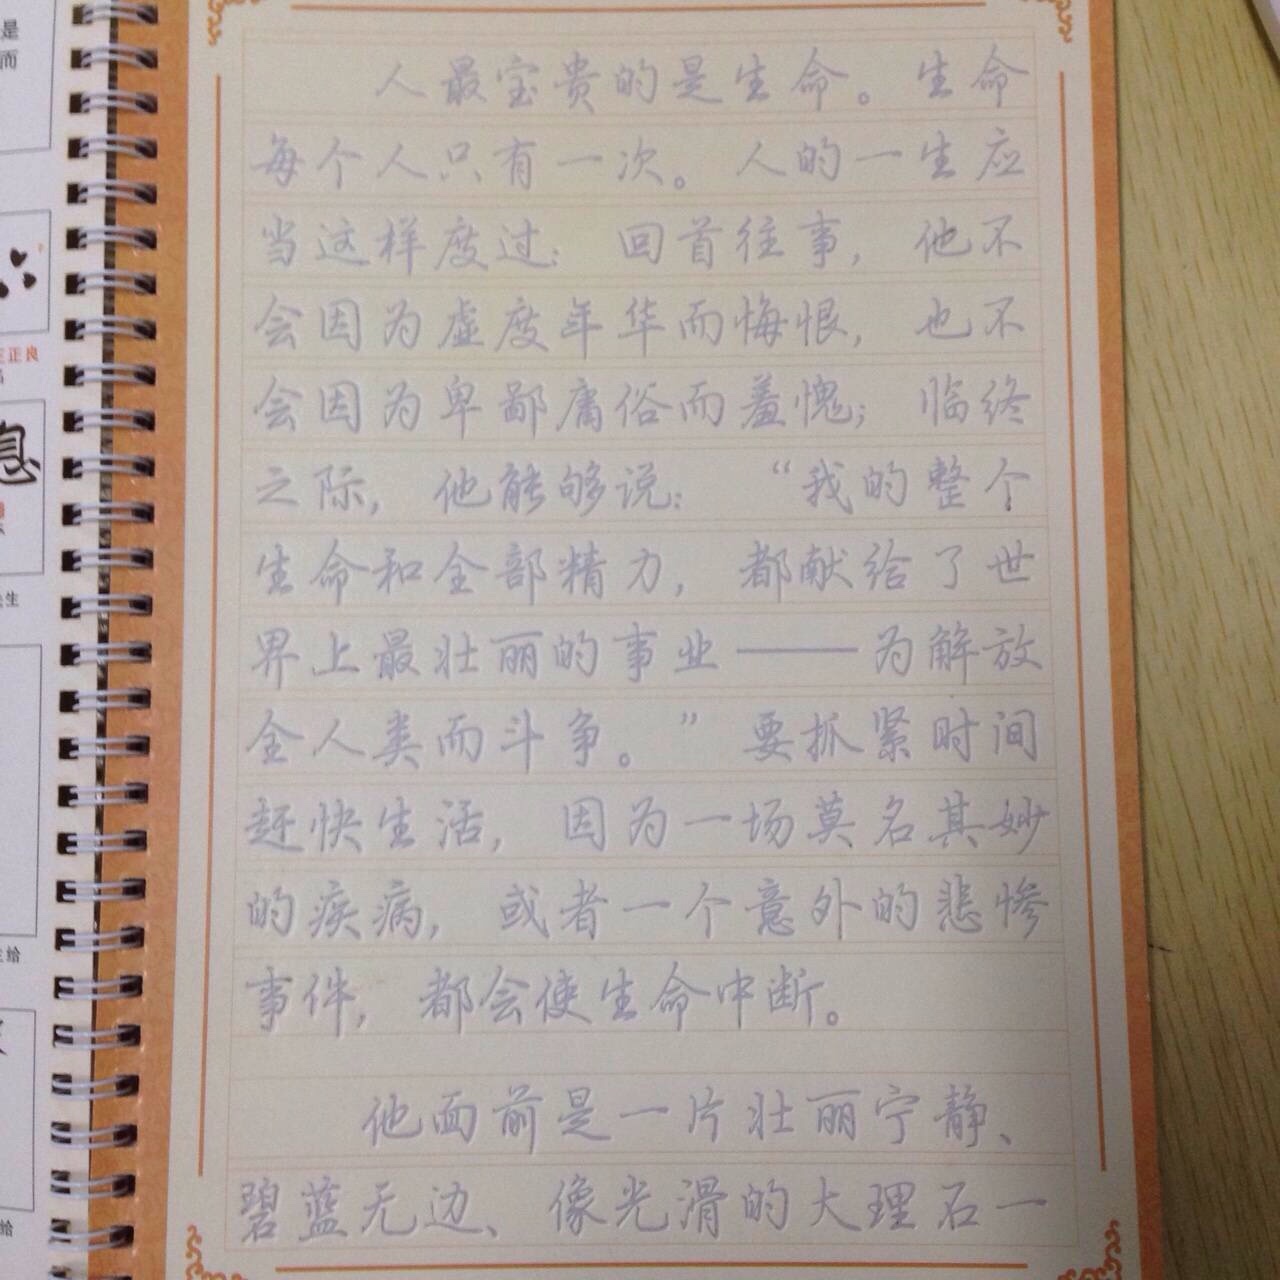 人最宝贵的是生命。生命
每个人只有一次。人的一生应
当这样度过：回首往事，他不
会因为虚度年华而悔恨，也不
会因为卑鄙庸俗而羞愧；临终
之际，他能够说：“我的整个
生命和全部精力，都献给了世
界上最壮丽的事业——为解放
全人类而斗争。”要抓紧时间
赶快生活，因为一场莫名其妙
的疾病，或者一个意外的悲惨
事件，都会使生命中断。
他面前是一片壮丽宁静、
碧蓝无边、像光滑的大理石一
是
而
正良
息
生
给
给